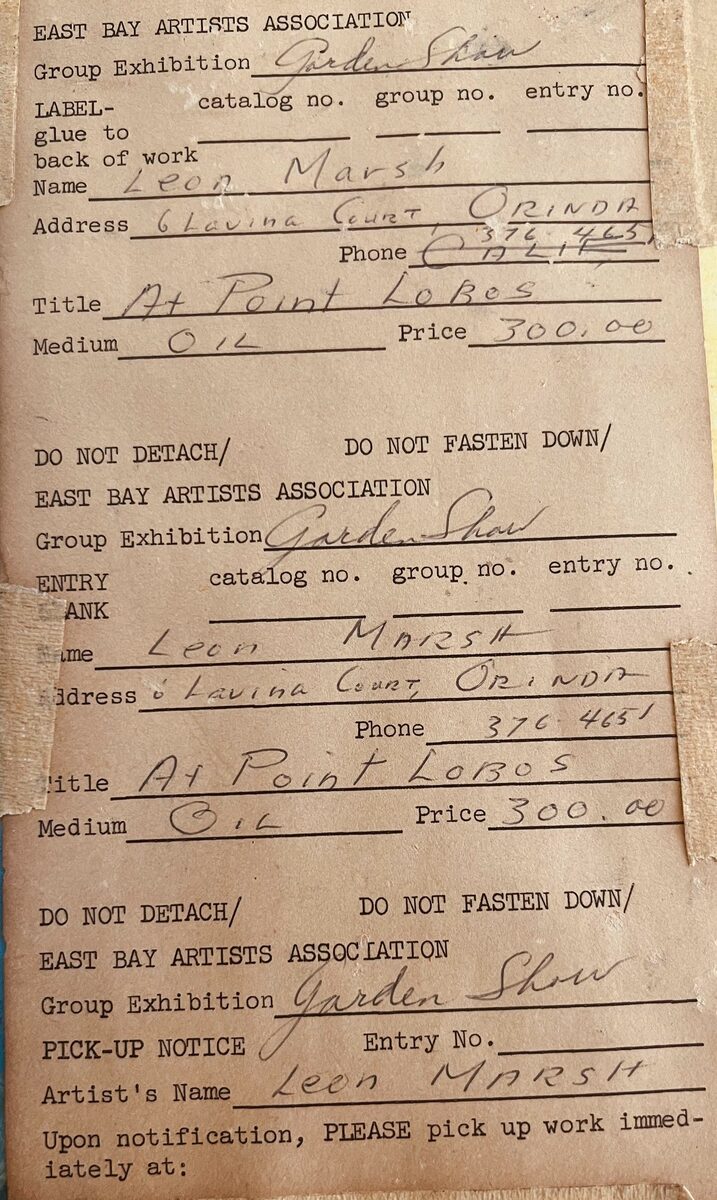 EAST BAY ARTISTS ASSOCIATION
Group Exhibition Garden Show
LABEL- catalog no. group no. entry no.
glue to
back of work
Name Leon Marsh
Address 6 Lavina Court, ORINDA
376 4651
Phone CALIF,
Title At Point LOBOS
Medium OIL Price 300.00
DO NOT DETACH/ DO NOT FASTEN DOWN/
EAST BAY ARTISTS ASSOCIATION
Group Exhibition Garden Show
ENTRY catalog no. group no. entry no.
ANK
ame Leon MARSH
ddress 6 Lavina Court, ORINDA
Phone 376 4651
itle At Point LOBOS
Medium OIL Price 300.00
DO NOT DETACH/ DO NOT FASTEN DOWN/
EAST BAY ARTISTS ASSOCIATION
Group Exhibition Garden Show
PICK-UP NOTICE Entry No.
Artist's Name Leon MARSH
Upon notification, PLEASE pick up work immed-
iately at: